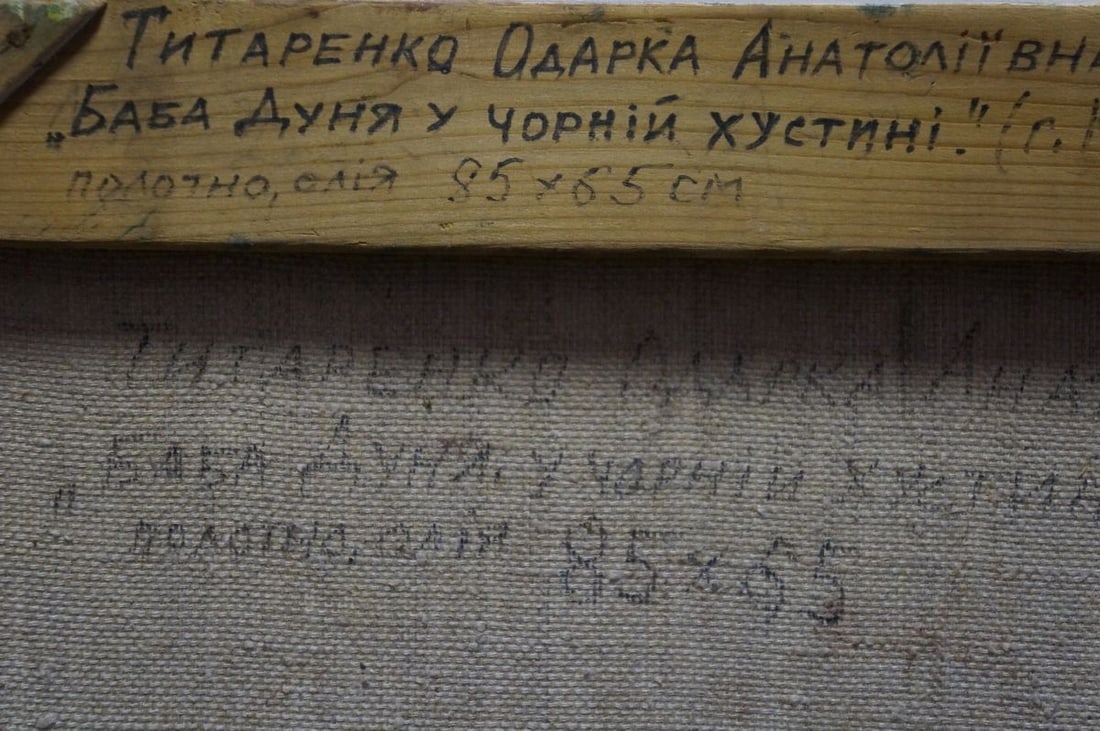 Титаренко Одарка Анатоліївна
„Баба Дуня у чорній хустині." (г.
полотно, олія 85 x 65 см
Титаренко Одарка Ана
„Баба Дуня у чорній хустин
полотно, олія 85 x 65